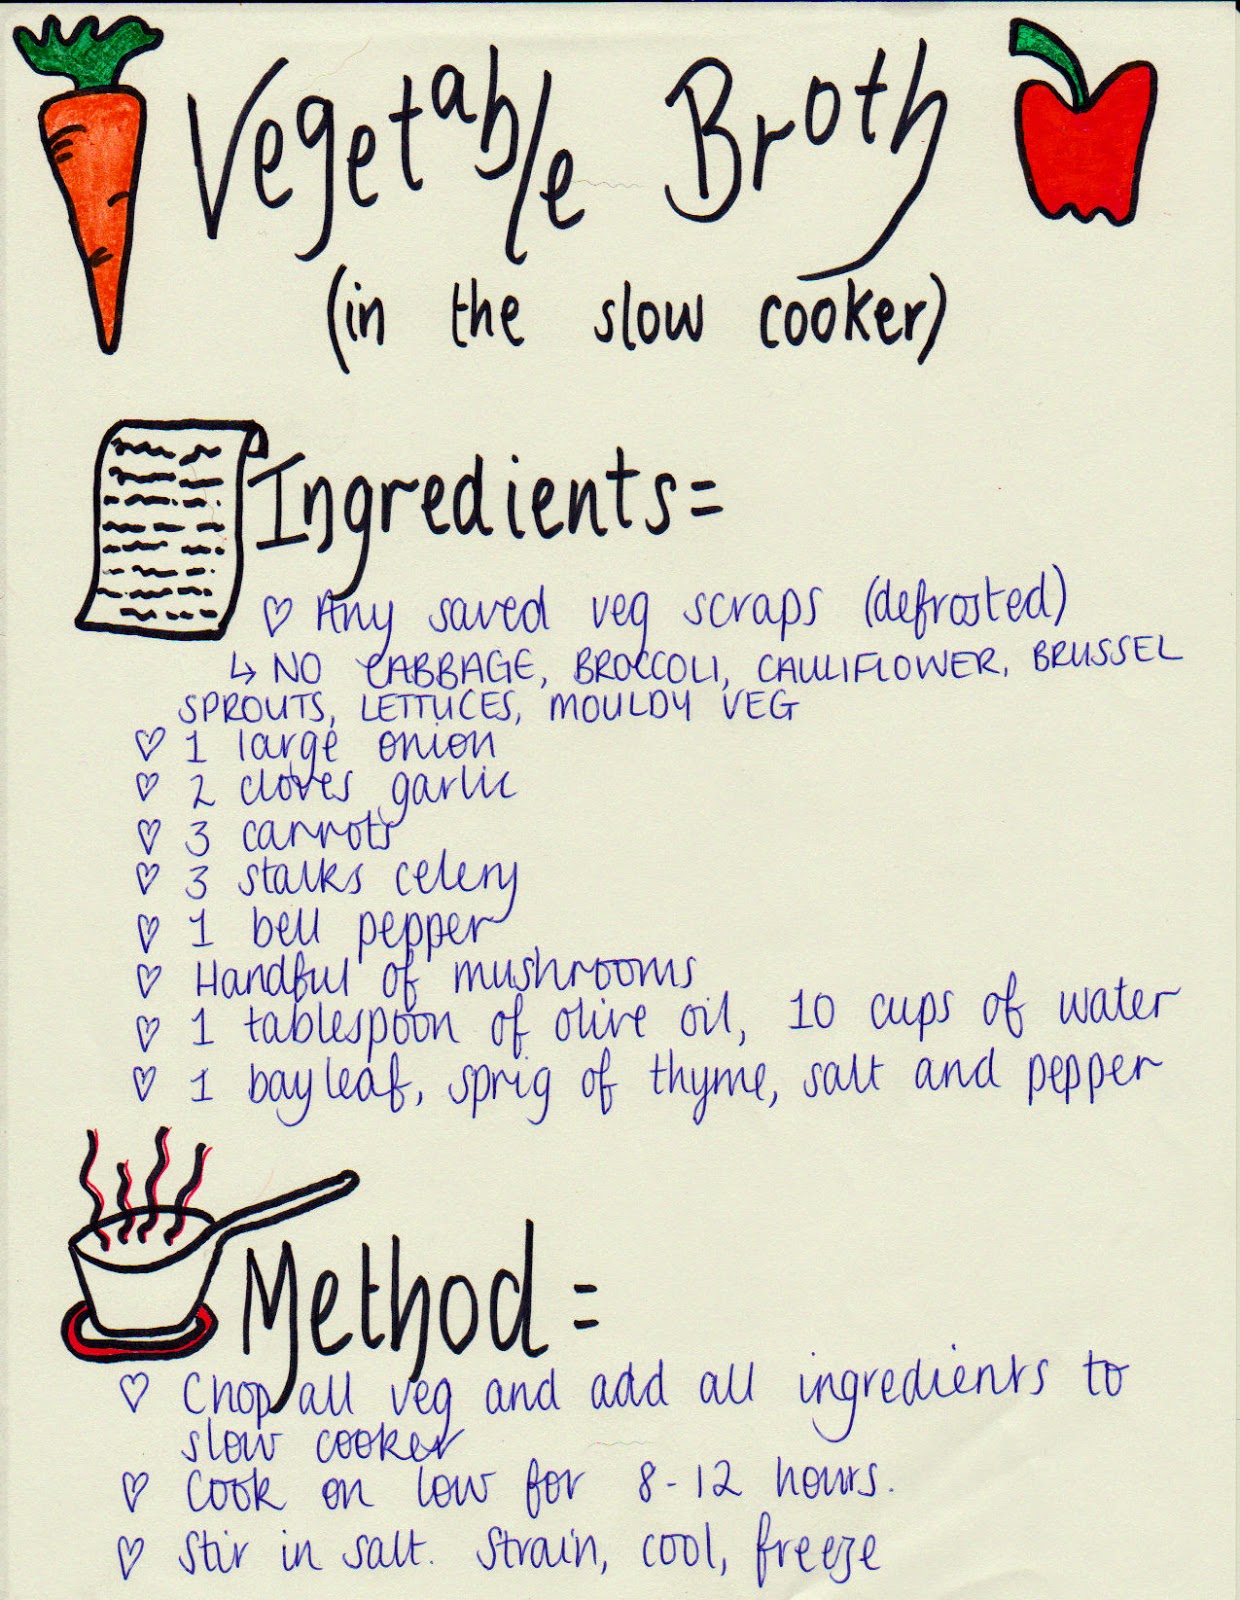 Vegetable Broth
(in the slow cooker)
Ingredients=
♡ Any saved veg scraps (defrosted)
↳ NO CABBAGE, BROCCOLI, CAULIFLOWER, BRUSSEL
SPROUTS, LETTUCES, MOULDY VEG
♡ 1 large onion
♡ 2 cloves garlic
♡ 3 carrots
♡ 3 stalks celery
♡ 1 bell pepper
♡ Handful of mushrooms
♡ 1 tablespoon of olive oil, 10 cups of water
♡ 1 bay leaf, sprig of thyme, salt and pepper
Method =
♡ Chop all veg and add all ingredients to
slow cooker
♡ Cook on low for 8-12 hours.
♡ Stir in salt. Strain, cool, freeze